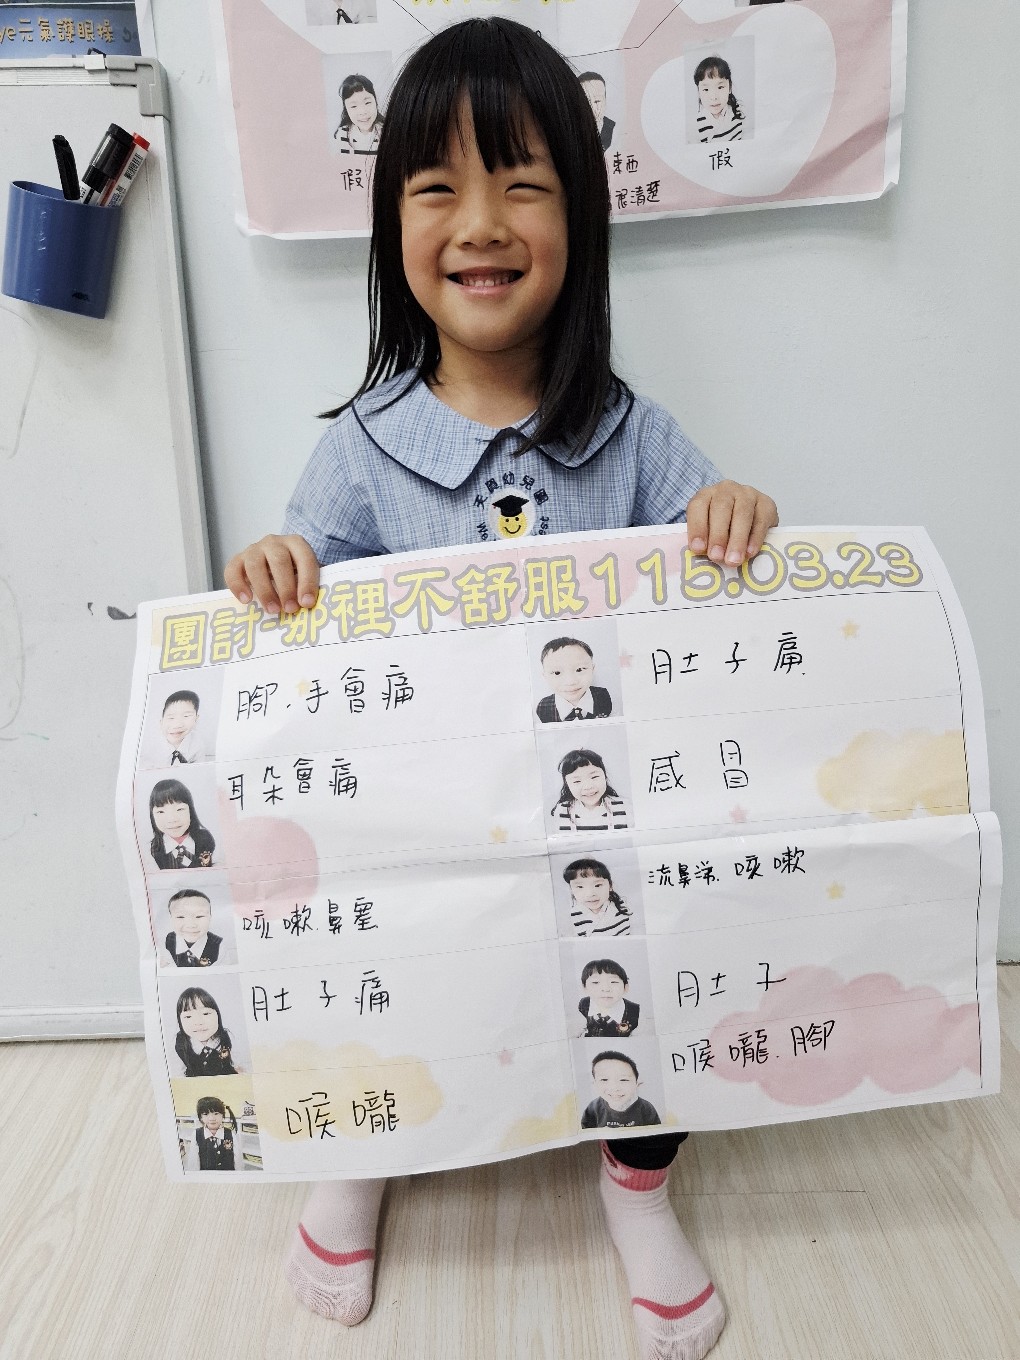 元氣護眼操
假
東西
很清楚
假
天資幼兒園
團討-哪裡不舒服115.03.23
腳、手會痛
肚子痛
耳朵會痛
感冒
咳嗽.鼻塞
流鼻涕.咳嗽
肚子痛
肚子
喉嚨
喉嚨.腳